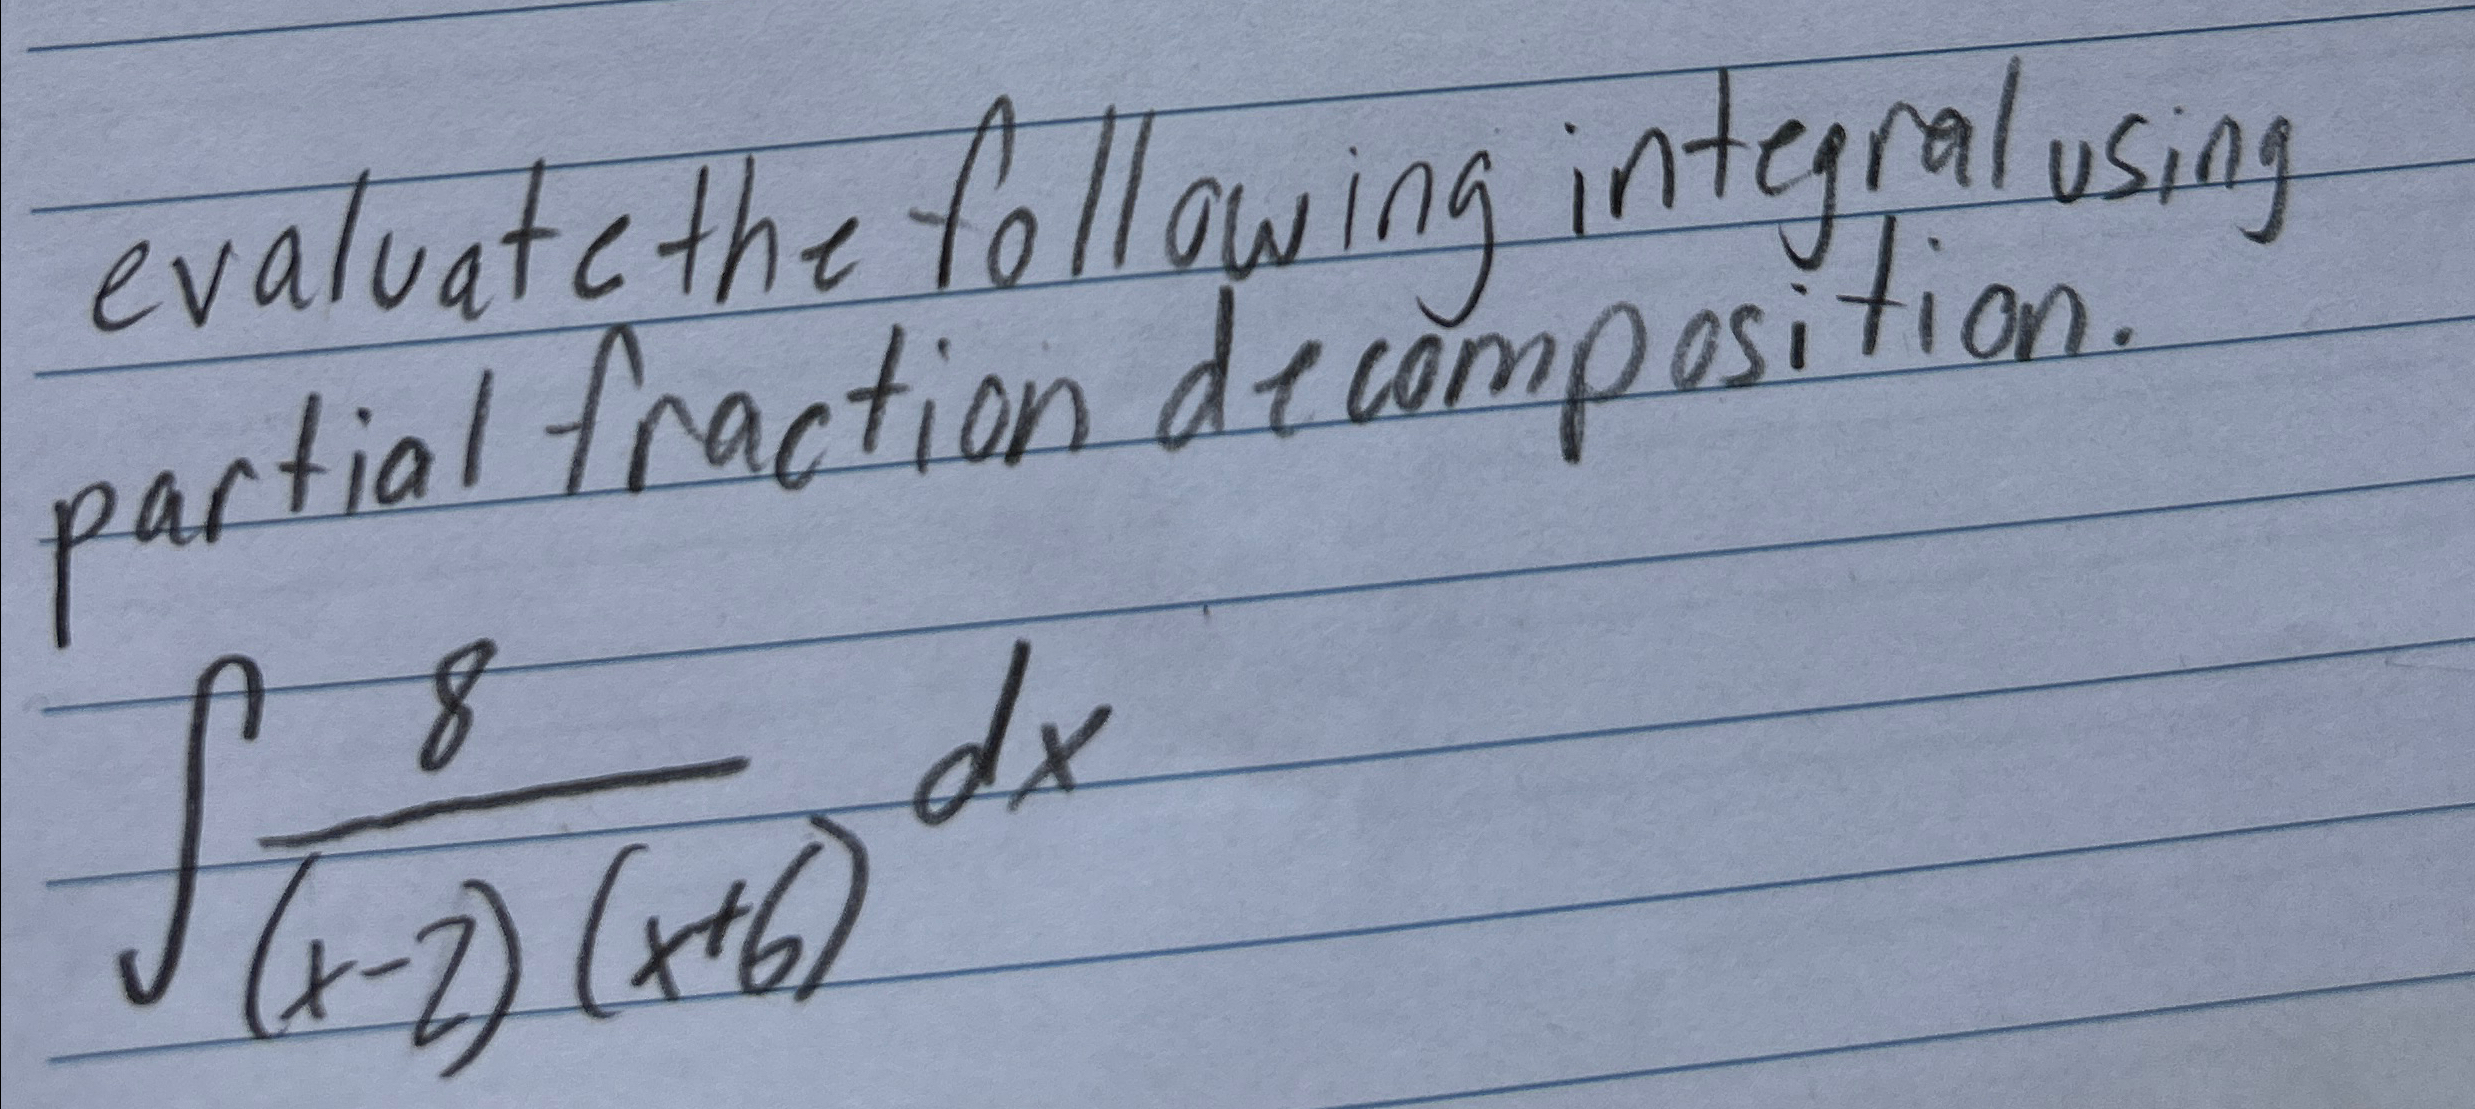 evaluate the following integral using
partial fraction decomposition.
∫ 8/((x-2)(x+6)) dx